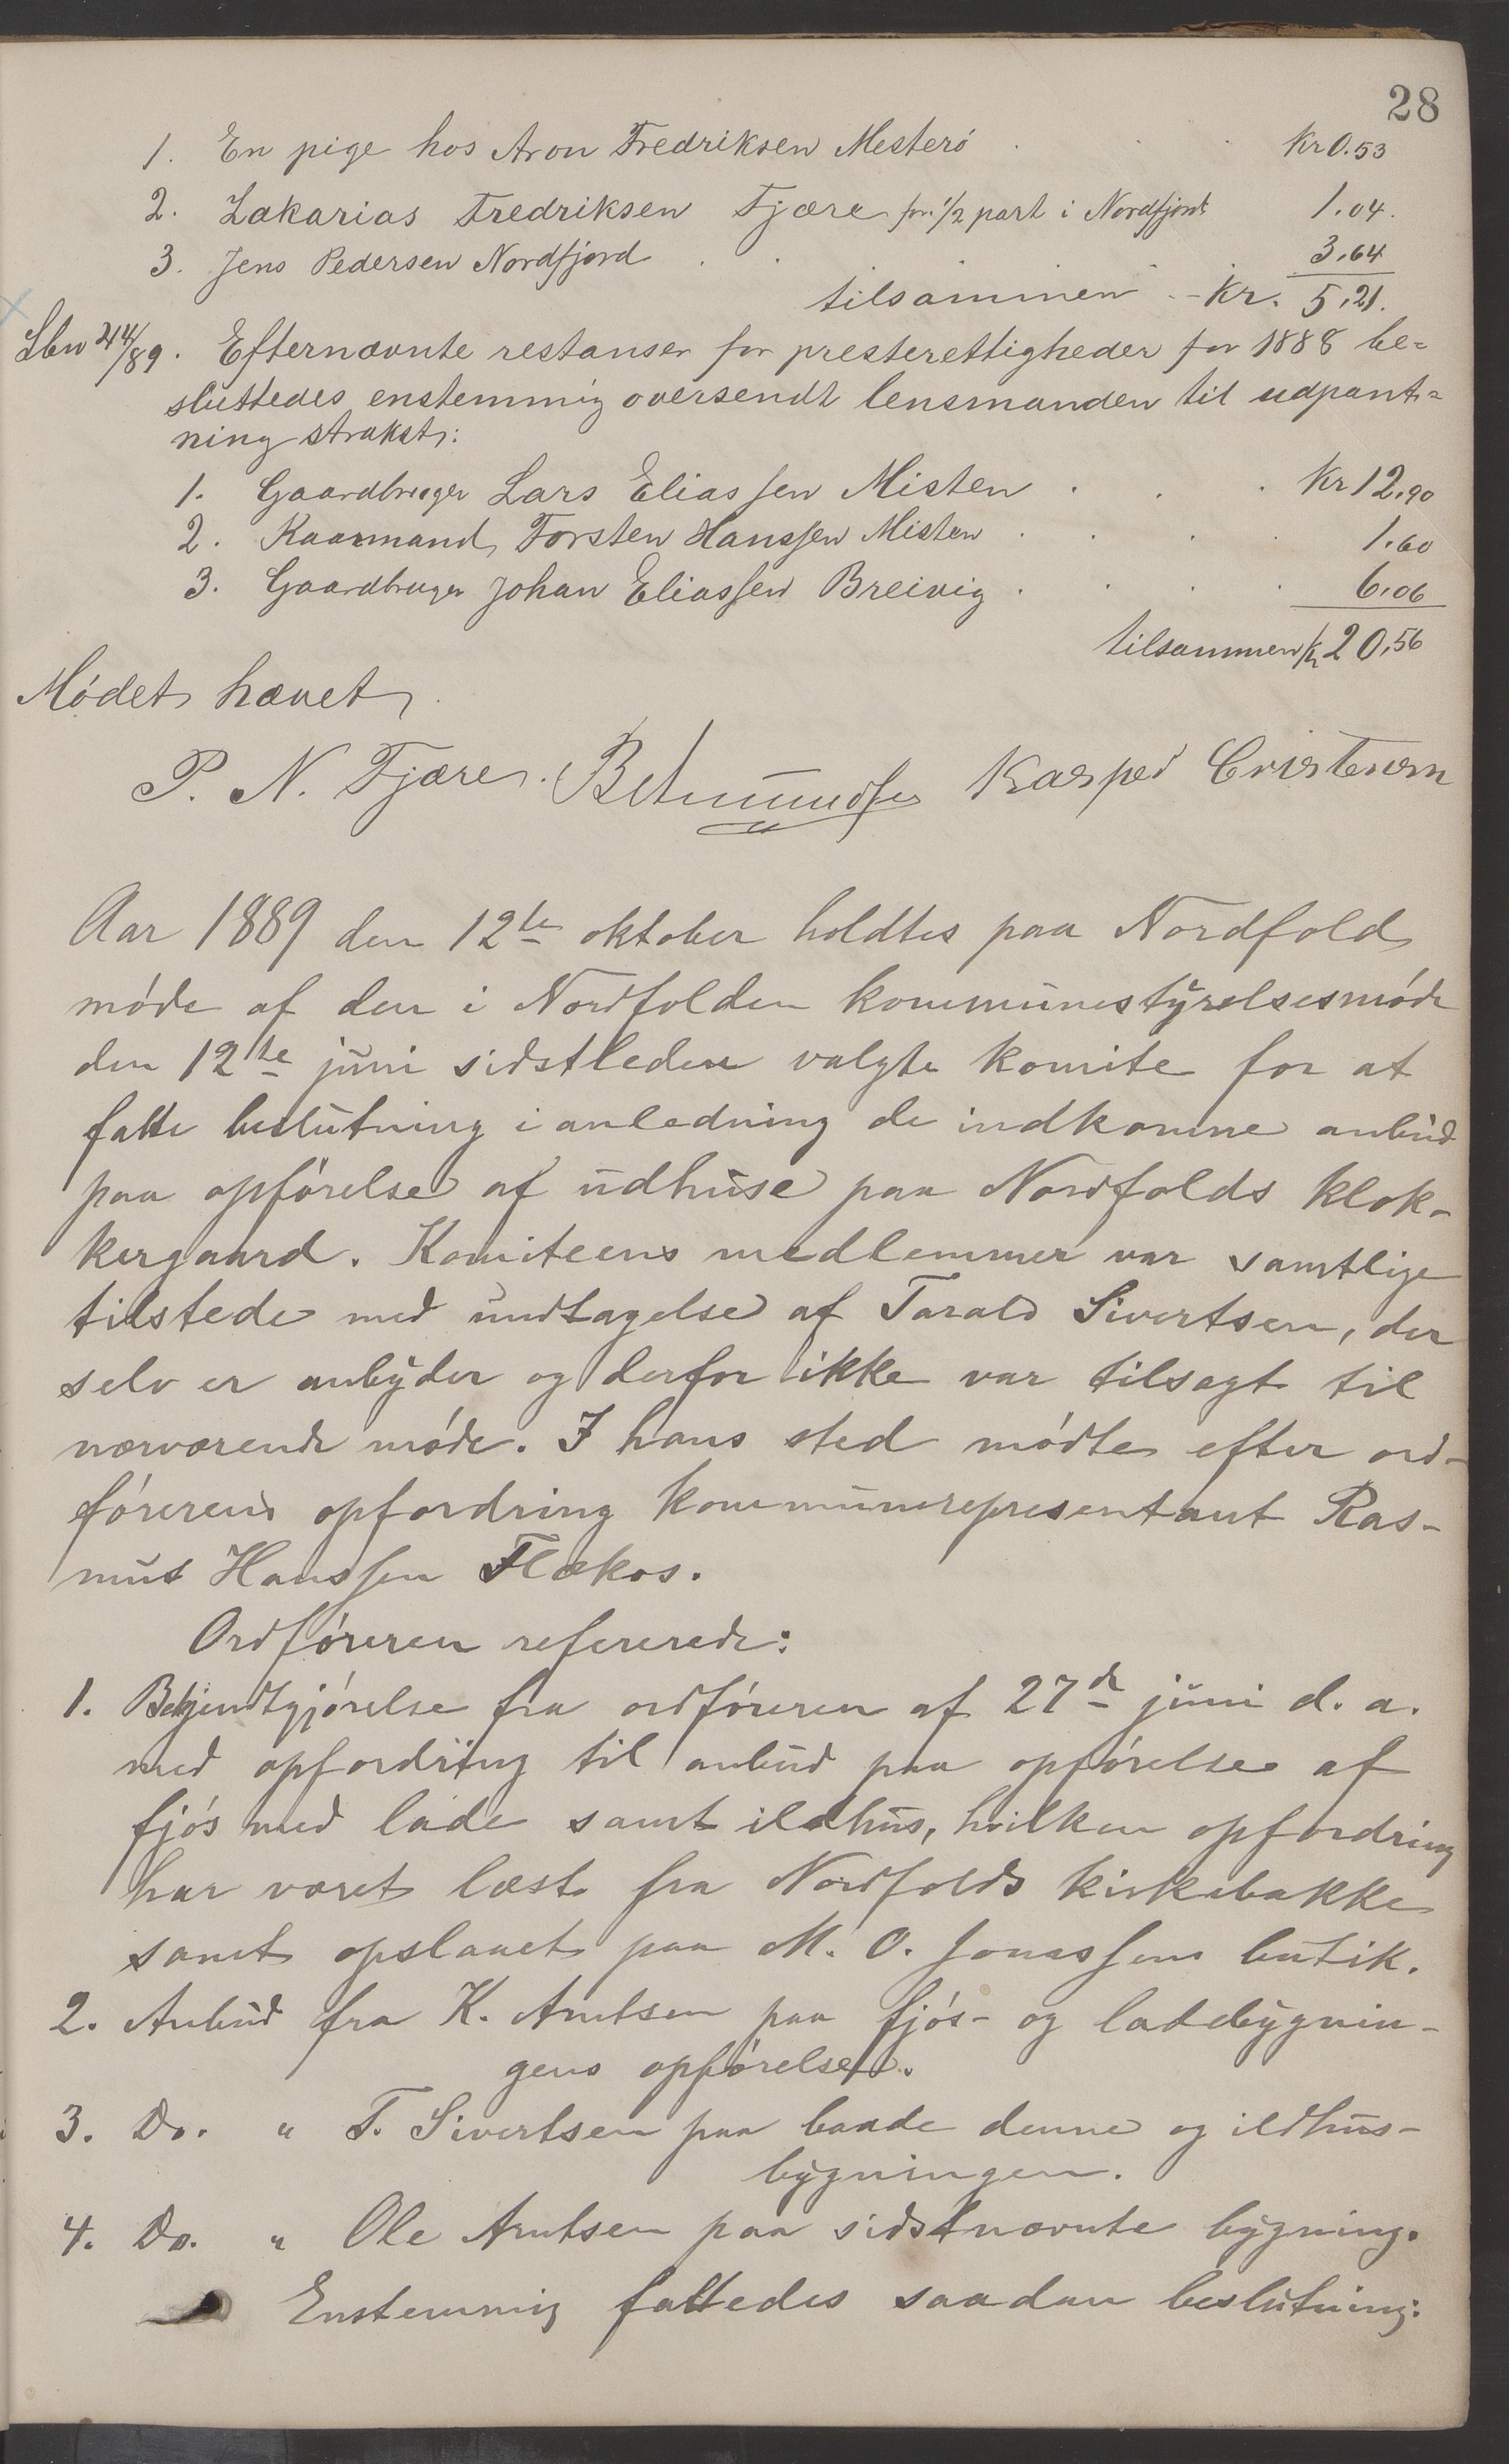 28
1. En pige hos Aron Fredriksen Mesterö Kr 0.53
2. Zakarias Fredriksen Fjære for 1/2 part i Nordfjord 1.04.
3. Jens Pedersen Nordfjord 3.64
tilsammen - Kr. 5,21.
Efternævnte restanser for presterettigheder for 1888 be=
sluttedes enstemmig oversendt lensmanden til udpant=
ning strakst:
1. Gaardbruger Lars Eliassen Misten Kr 12,90
2. Kaarmand Torsten Hanssen Misten 1.60
3. Gaardbruger Johan Eliassen Breivig 6,06
tilsammen Kr 20,56
Mödet hævet
P. N. Fjære. Kasper Cristensen
Aar 1889 den 12te oktober holdtes paa Nordfold
möde af den i Nordfolden kommunestyrelsesmöde
den 12te juni sidstleden valgte komite for at
fatte beslutning i anledning de indkomne anbud
paa opförelse af udhuse paa Nordfolds klok-
kergaard. Komiteens medlemmer var samtlige
tilstede med undtagelse af Tarald Sivertsen, der
selv er anbyder og derfor ikke var tilsagt til
nærværende möde. I hans sted mödte efter ord-
förerens opfordring kommunerepresentant Ras-
mus Hanssen Flækos.
Ordföreren refererede:
1. Bekjendtgjörelse fra ordföreren af 27de juni d. a.
med opfordring til anbud paa opförelse af
fjös med lade samt ildhus, hvilken opfordring
har været læst fra Nordfolds kirkebakke
samt opslaaet paa M. O. Jonassens butik.
2. Anbud fra K. Arntsen paa fjös- og ladebygnin-
gens opförelse.
3. Do. " T. Sivertsen paa baade denne og ildhus-
bygningen.
4. Do. " Ole Arntsen paa sidstnævnte bygning.
Enstemmig fattedes saadan beslutning: